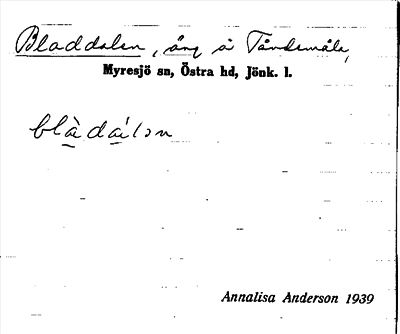 Bladdalen, äng å Tåndemåla,
Myresjö sn, Östra hd, Jönk. l.
blàdálən
Annalisa Anderson 1939